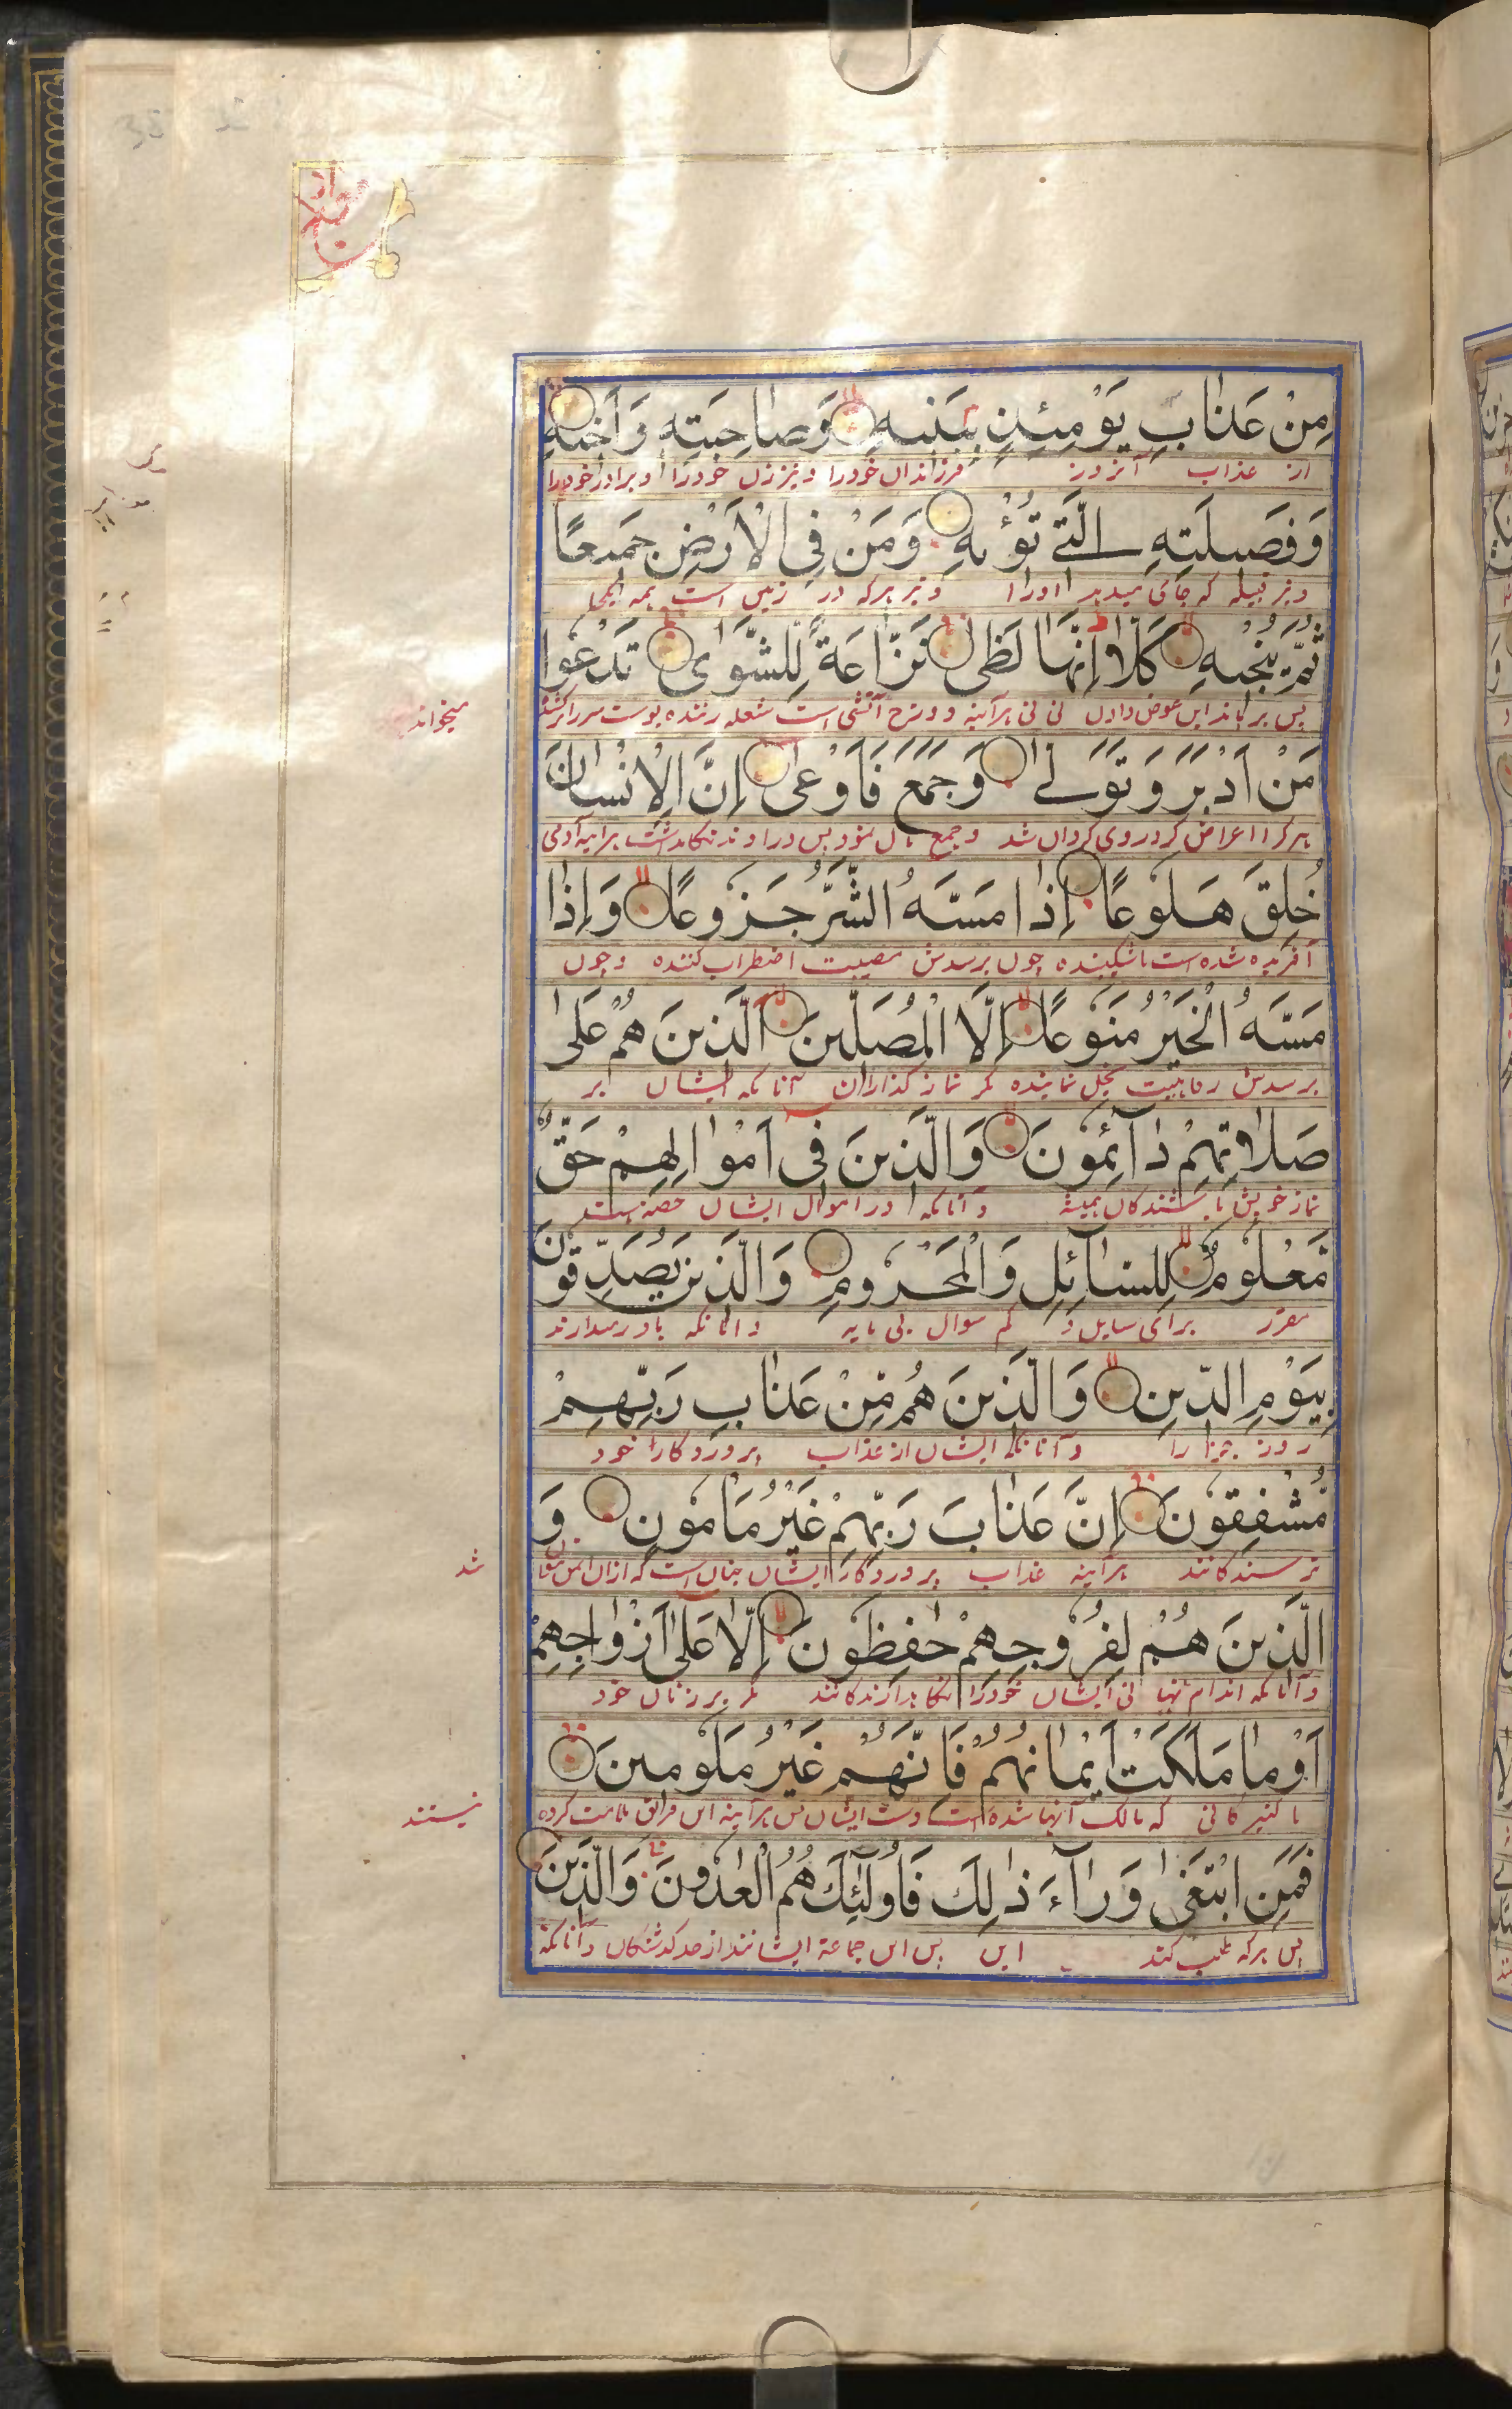 مِنْ عَذَابِ يَوْمِئِذٍ بِبَنِيهِ وَصَاحِبَتِهِ وَأَخِيهِ
از عذاب آنروز فرزندان خود را و نیز زن خود را و برادر خود را
وَفَصِيلَتِهِ الَّتِي تُؤْيهِ وَمَنْ فِي الْأَرْضِ جَمِيعًا
و نیز قبیله که جای میدهد او را و نیز هرکه در زمین است همه یکجا
ثُمَّ يُنْجِيهِ كَلَّا إِنَّهَا لَظَى نَزَّاعَةً لِلشَّوَى تَدْعُوا
پس برهاند این عوض دادن نی نی هرآینه دوزخ آتشی است شعله زننده پوست سر را کشنده
میخواند
مَنْ أَدْبَرَ وَتَوَلَّى وَجَمَعَ فَأَوْعَى إِنَّ الْإِنْسَانَ
هرکرا اعراض کرد و روی گردان شد و جمع مال نمود پس در آوند نگاهداشت هرآینه آدمی
خُلِقَ هَلُوعًا إِذَا مَسَّهُ الشَّرُّ جَزُوعًا وَإِذَا
آفریده شده است ناشکیبنده چون برسدش مصیبت اضطراب کننده و چون
مَسَّهُ الْخَيْرُ مَنُوعًا إِلَّا الْمُصَلِّينَ الَّذِينَ هُمْ عَلَى
برسدش رفاهیت بخل نماینده مگر نماز گذاران آنانکه ایشان بر
صَلَاتِهِمْ دَآئِمُونَ وَالَّذِينَ فِي أَمْوَالِهِمْ حَقٌّ
نماز خویش باشندگان همیشه و آنانکه در اموال ایشان حصه هست
مَعْلُومٌ لِلسَّآئِلِ وَالْمَحْرُومِ وَالَّذِينَ يُصَدِّقُونَ
مقرر برای سایل و کم سوال بی مایه و آنانکه باور میدارند
بِيَوْمِ الدِّينِ وَالَّذِينَ هُمْ مِنْ عَذَابِ رَبِّهِمْ
روز جزا را و آنانکه ایشان از عذاب پروردگار خود
مُشْفِقُونَ إِنَّ عَذَابَ رَبِّهِمْ غَيْرُ مَأْمُونٍ وَ
ترسندگانند هرآینه عذاب پروردگار ایشان چنان است که ازان ایمن نتوان
شد
الَّذِينَ هُمْ لِفُرُوجِهِمْ حَافِظُونَ إِلَّا عَلَى أَزْوَاجِهِمْ
و آنانکه اندام نهانی ایشان خود را نگاهدارندگانند مگر بر زنان خود
أَوْ مَا مَلَكَتْ أَيْمَانُهُمْ فَإِنَّهُمْ غَيْرُ مَلُومِينَ
یا کنیزکانی که مالک آنها شده است دست ایشان پس هرآینه این فریق ملامت کرده
نیستند
فَمَنِ ابْتَغَى وَرَآءَ ذَلِكَ فَأُولَئِكَ هُمُ الْعَادُونَ وَالَّذِينَ
پس هرکه طلب کند این پس این جماعة ایشانند از حد گذشتگان و آنانکه